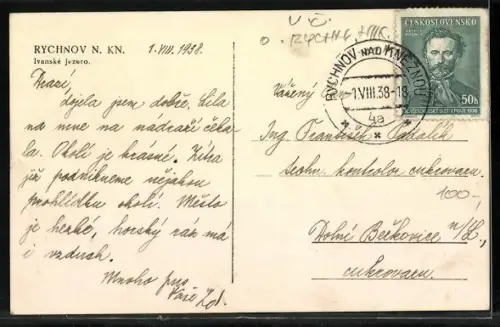 RYCHNOV N. KN.
Ivanské Jezero.
1.VIII.1938.
Drazí,
dojela jsem dobře. Líla
na mne na nádraží čeka-
la. Okolí je krásné. Zítra
již podnikneme nějakou
prohlídku okolí. Město
je hezké, horský ráz má
i vzduch.
Mnoho pus
Vaše
V Č.
O. RYCHN
ČESKOSLOVENSKO
50h
RYCHNOV NAD KNĚŽNOU
-1.VIII.38-18
4a
Vážený pan
Ing František
techn. kontrolor cukrovaru
100,-
Dolní Beřkovice n/L.,
cukrovaru.